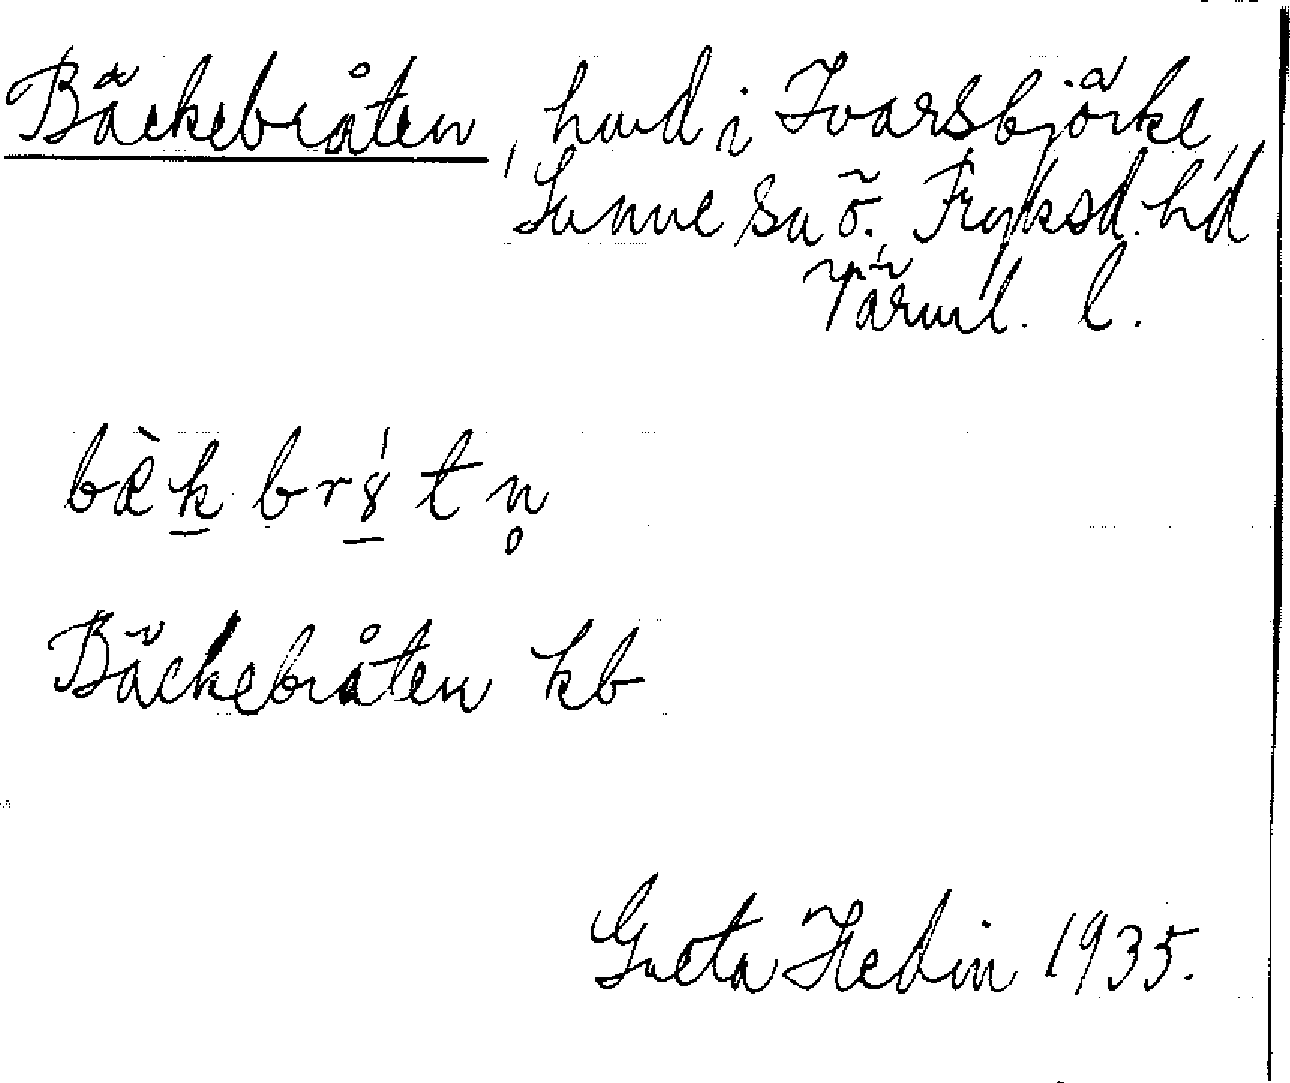 Bäckebråten, hmd i Ivarsbjörke,
Sunne sn Ö. Fryksd. hd
Värml. l.
bæ̀k brs̍ tn̥
Bäckebråten kb
Greta Hedin 1935.